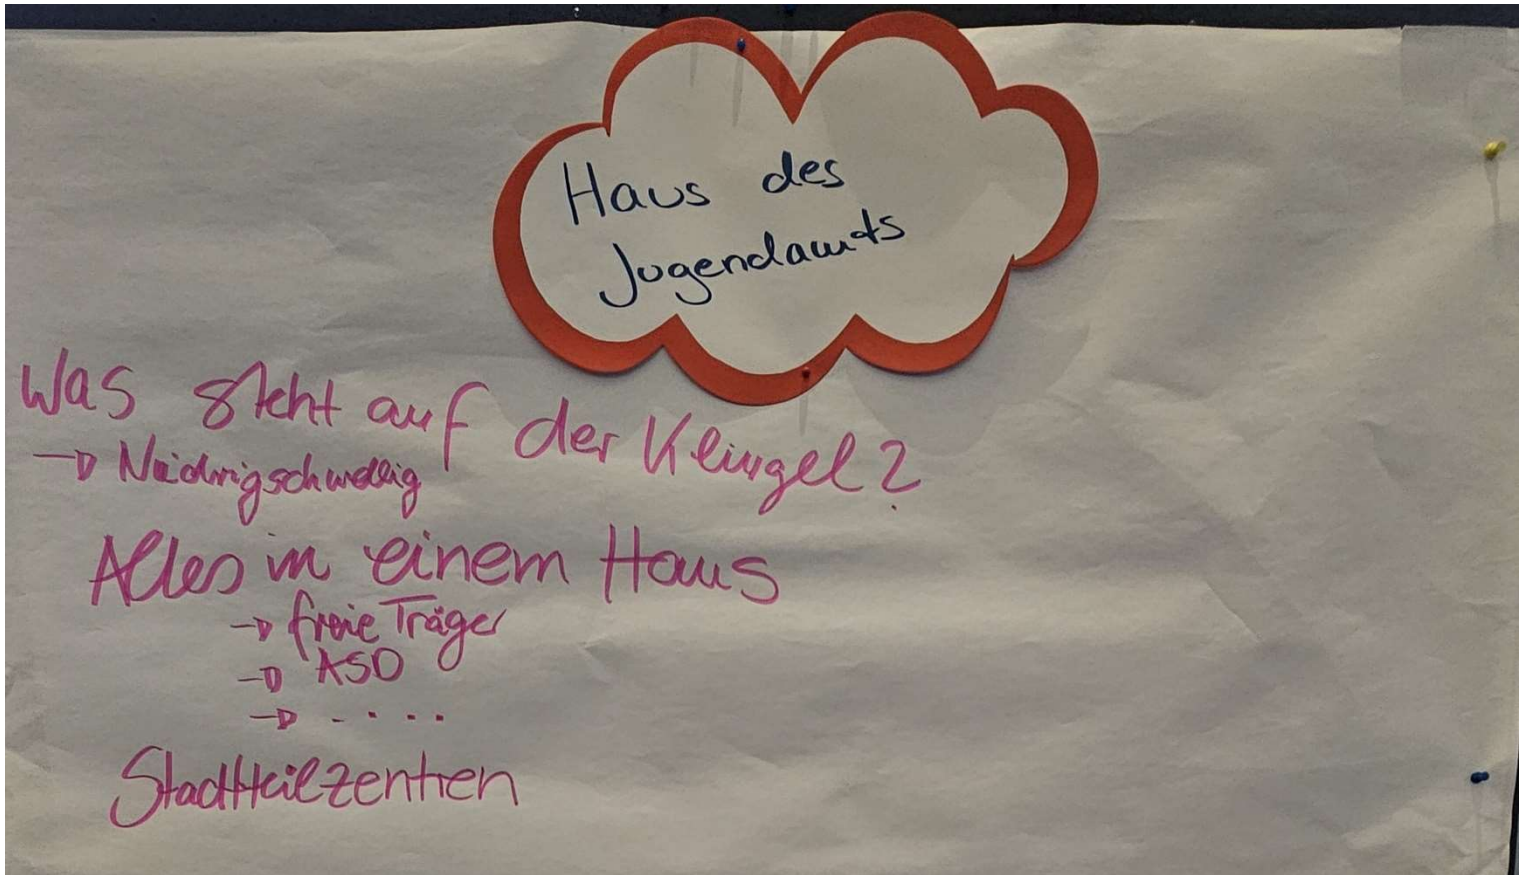 Haus des
Jugendamts
Was steht auf der Klingel?
→ Niedrigschwellig
Alles in einem Haus
→ freie Träger
→ ASD
→ ....
Stadtteilzentren